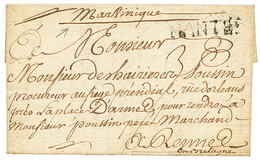 Martinique
NANTES
A Monsieur
Monsieur Poussin
procureur au siege presidial, rue dorleans
près la place D'armes, pour rendre a
Monsieur poussin Marchand
a Rennes
en bretagne